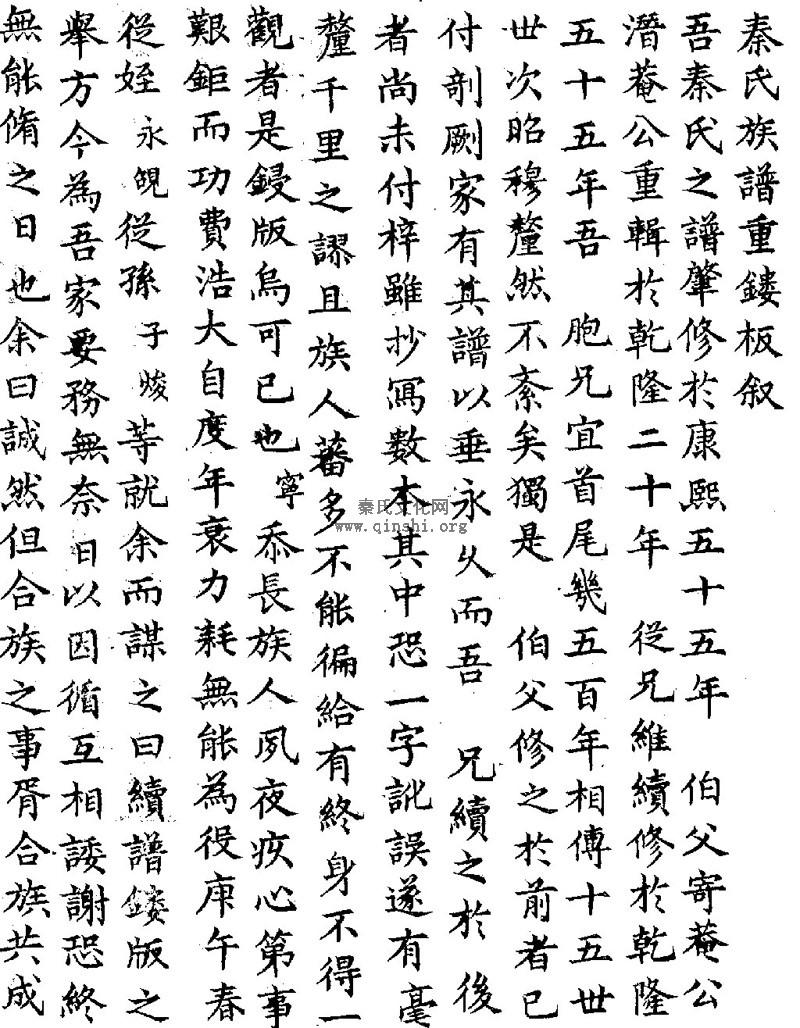 秦氏族譜重鏤板叙
吾秦氏之譜肇修於康熙五十五年 伯父寄菴公
潛菴公重輯於乾隆二十年 從兄維續修於乾隆
五十五年吾 胞兄宜首尾幾五百年相傳十五世
世次昭穆釐然不紊矣獨是 伯父修之於前者已
付剞劂家有其譜以垂永久而吾 兄續之於後
者尚未付梓雖抄寫数本其中恐一字訛誤遂有毫
釐千里之謬且族人蕃多不能徧給有終身不得一
觀者是鋟版烏可已也寧 忝長族人夙夜疚心第事
艱鉅而功費浩大自度年衰力耗無能為役庚午春
從姪永䚮從孫子焌等就余而謀之曰續譜鏤版之
舉方今為吾家要務無奈日以因循互相諉謝恐終
無能脩之日也余曰誠然但合族之事胥合族共成
秦氏文化网
www.qinshi.org